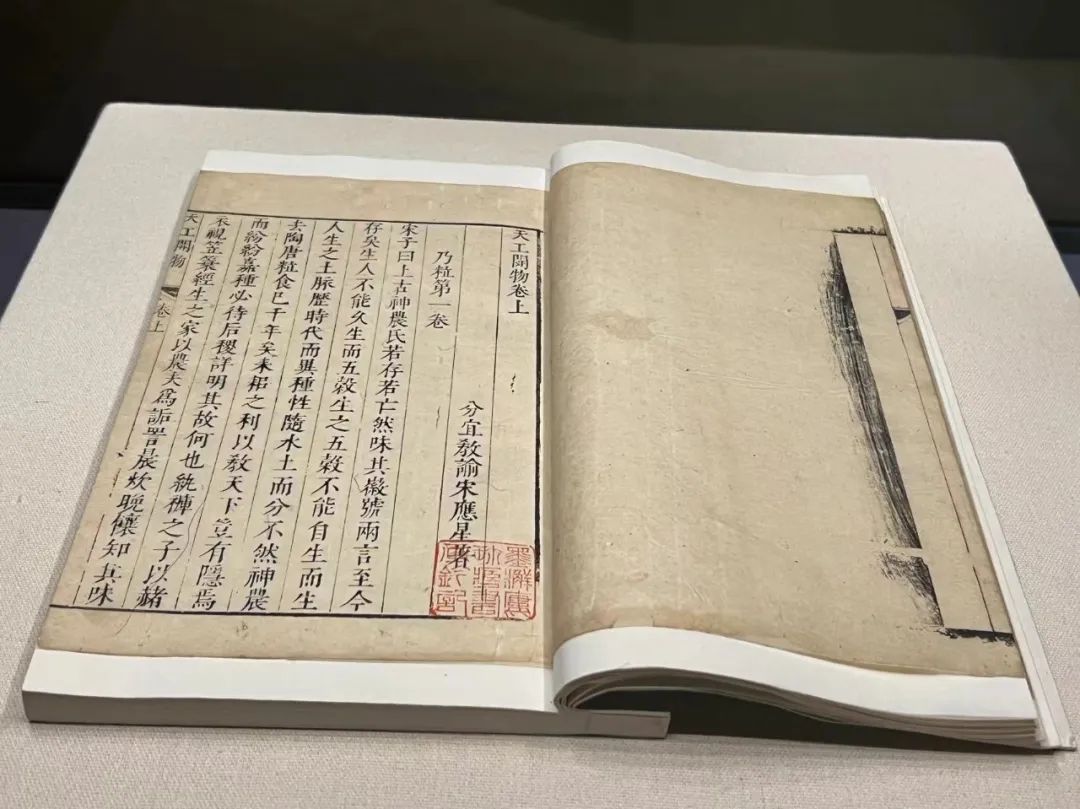 天工開物卷上
分宜敎諭宋應星著
乃粒第一卷
宋子曰上古神農氏若存若亡然味其徽號兩言至今
存矣生人不能久生而五穀生之五穀不能自生而生
人生之土脈歷時代而異種性隨水土而分不然神農
去陶唐粒食已千年矣耒耜之利以敎天下豈有隱焉
而紛紛嘉種必待后稷詳明其故何也紈褲之子以赭
衣視笠簑經生之家以農夫爲詬詈晨炊晚饟知其味
天工開物 卷上